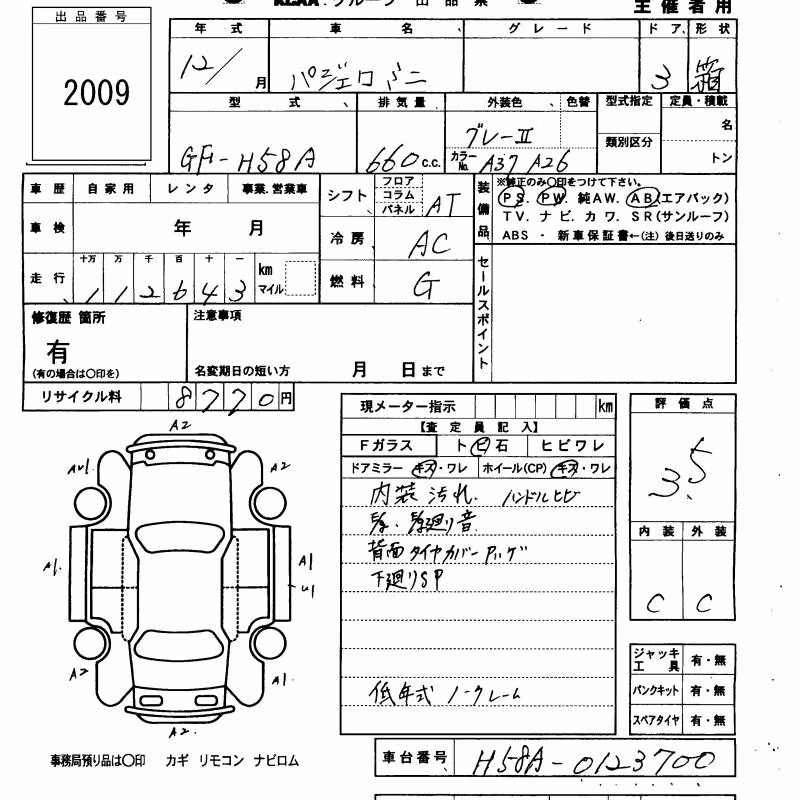 KCAA・グループ 出品票
主催者用
出品番号
2009
年式 車名 グレード ドア 形状
12/ 月 パジェロミニ 3 箱
型式 排気量 外装色 色替 型式指定 定員・積載
類別区分
名
トン
GF-H58A 660 c.c. グレーⅡ カラーNo. A37 A26
車歴 自家用 レンタ 事業.営業車
車検 年 月
走行 十万 万 千 百 十 一 km マイル
112643
シフト フロア コラム パネル AT
冷房 AC
燃料 G
装備品
※純正のみ〇印をつけて下さい。
PS. PW. 純AW. AB(エアバック)
TV. ナビ. カワ. SR(サンルーフ)
ABS ・ 新車保証書←(注) 後日送りのみ
セールスポイント
修復歴 箇所
有
(有の場合は〇印を)
注意事項
名変期日の短い方 月 日まで
リサイクル料 8770 円
現メーター指示 km
【査定員記入】
Fガラス トビ石 ヒビワレ
ドアミラー キズ・ワレ ホイール(CP) キズ・ワレ
内装汚れ. ハンドルヒビ
廻り音
背面タイヤカバーアッゲ
下廻りSP
低年式 ノークレーム
評価点
3.5
内装 外装
C C
ジャッキ工具 有・無
パンクキット 有・無
スペアタイヤ 有・無
A2
A2
A1
A1
U1
A2
A1
A2
事務局預り品は〇印 カギ リモコン ナビロム
車台番号 H58A-0123700